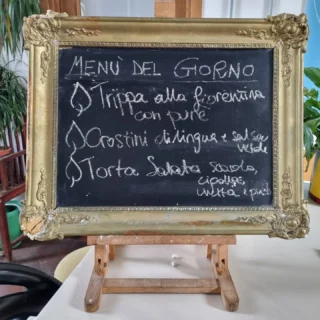 MENÙ DEL GIORNO
Trippa alla fiorentina
con purè
Crostini di lingua e salsa
verde
Torta Salata scarola,
cipolla,
uvetta e pinoli